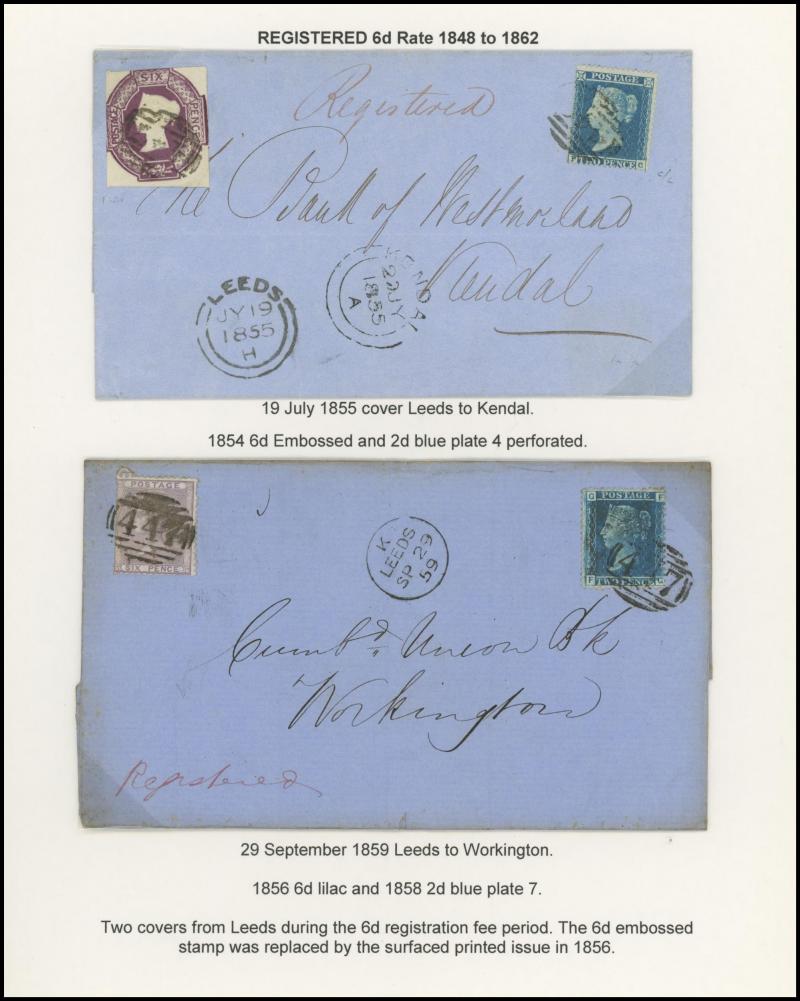 REGISTERED 6d Rate 1848 to 1862
SIX
POSTAGE
PENCE
POSTAGE
F TWO PENCE C
Registered
The Bank of Westmorland
Kendal
LEEDS
JY 19
1855
H
KENDAL
22 JY
1855
A
19 July 1855 cover Leeds to Kendal.
1854 6d Embossed and 2d blue plate 4 perforated.
POSTAGE
447
SIX PENCE
K
LEEDS
SP 29
59
G POSTAGE F
F TWO PENCE G
447
Cumbd Union Bk
Workington
Registered
29 September 1859 Leeds to Workington.
1856 6d lilac and 1858 2d blue plate 7.
Two covers from Leeds during the 6d registration fee period. The 6d embossed
stamp was replaced by the surfaced printed issue in 1856.